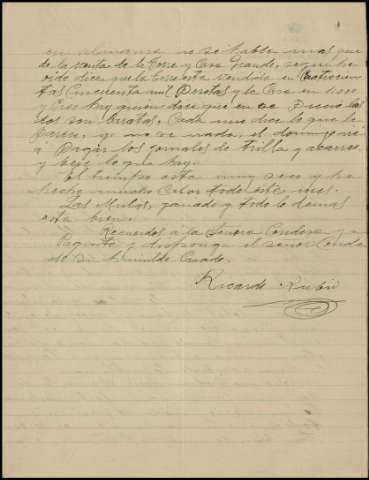 en Almansa no se habla mas que
de la venta de la Torre y Casa Grande, segun he
oido dicen que la Torre esta vendida en Cuatrocien
tas Cincuenta mil Pesetas y la Casa en
y Cres hay quien dice que en ese Precio las
dos son baratas. Cada uno dice lo que le
Parece, yo no se nada, el domingo iré
á Pagar los jornales de trilla y acarreo
y veré lo que hay.
El tiempo esta muy seco y ha
hecho mucho Calor todo este mes.
Las Mulas, ganado y todo lo demas
esta bien.
Recuerdos á la Señora Condesa y a
Paquito y disponga el señor Conde
de su humilde Criado.
Ricardo Rubio